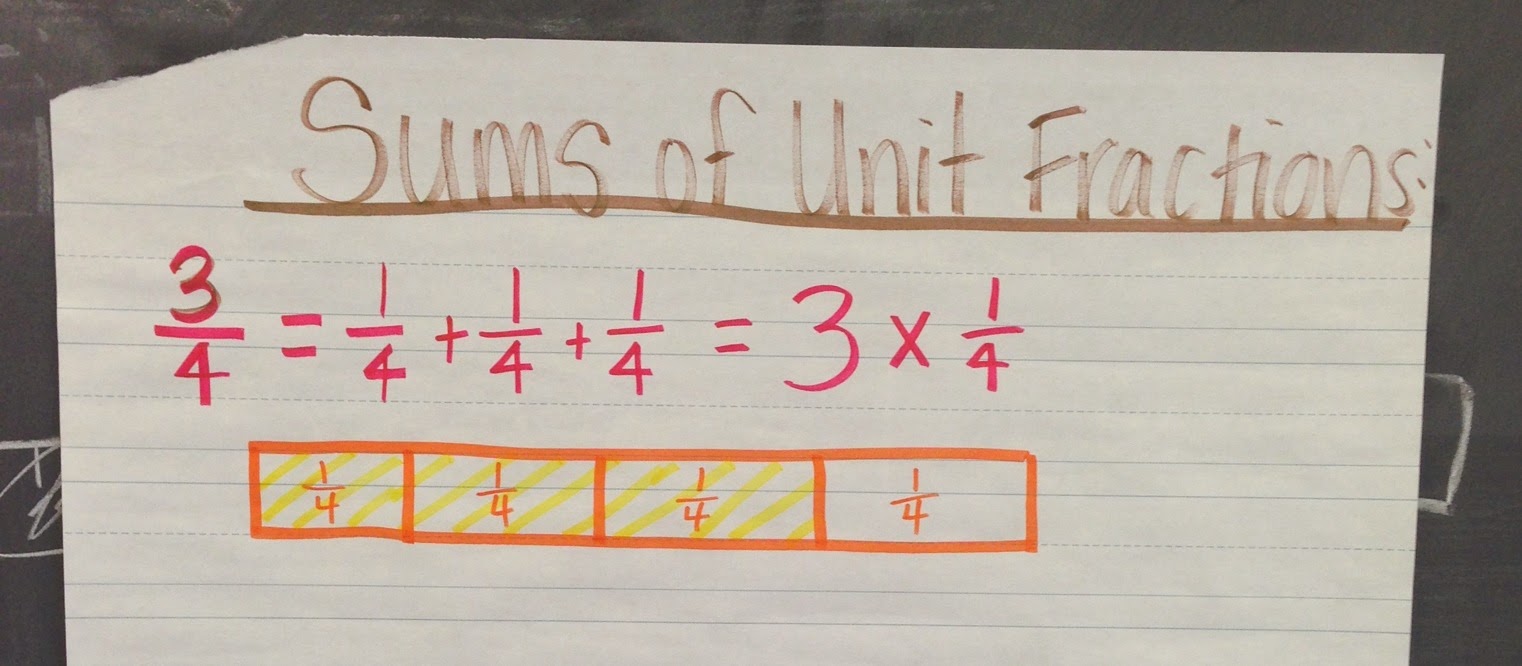 Sums of Unit Fractions:
3/4 = 1/4 + 1/4 + 1/4 = 3 x 1/4
1/4 1/4 1/4 1/4